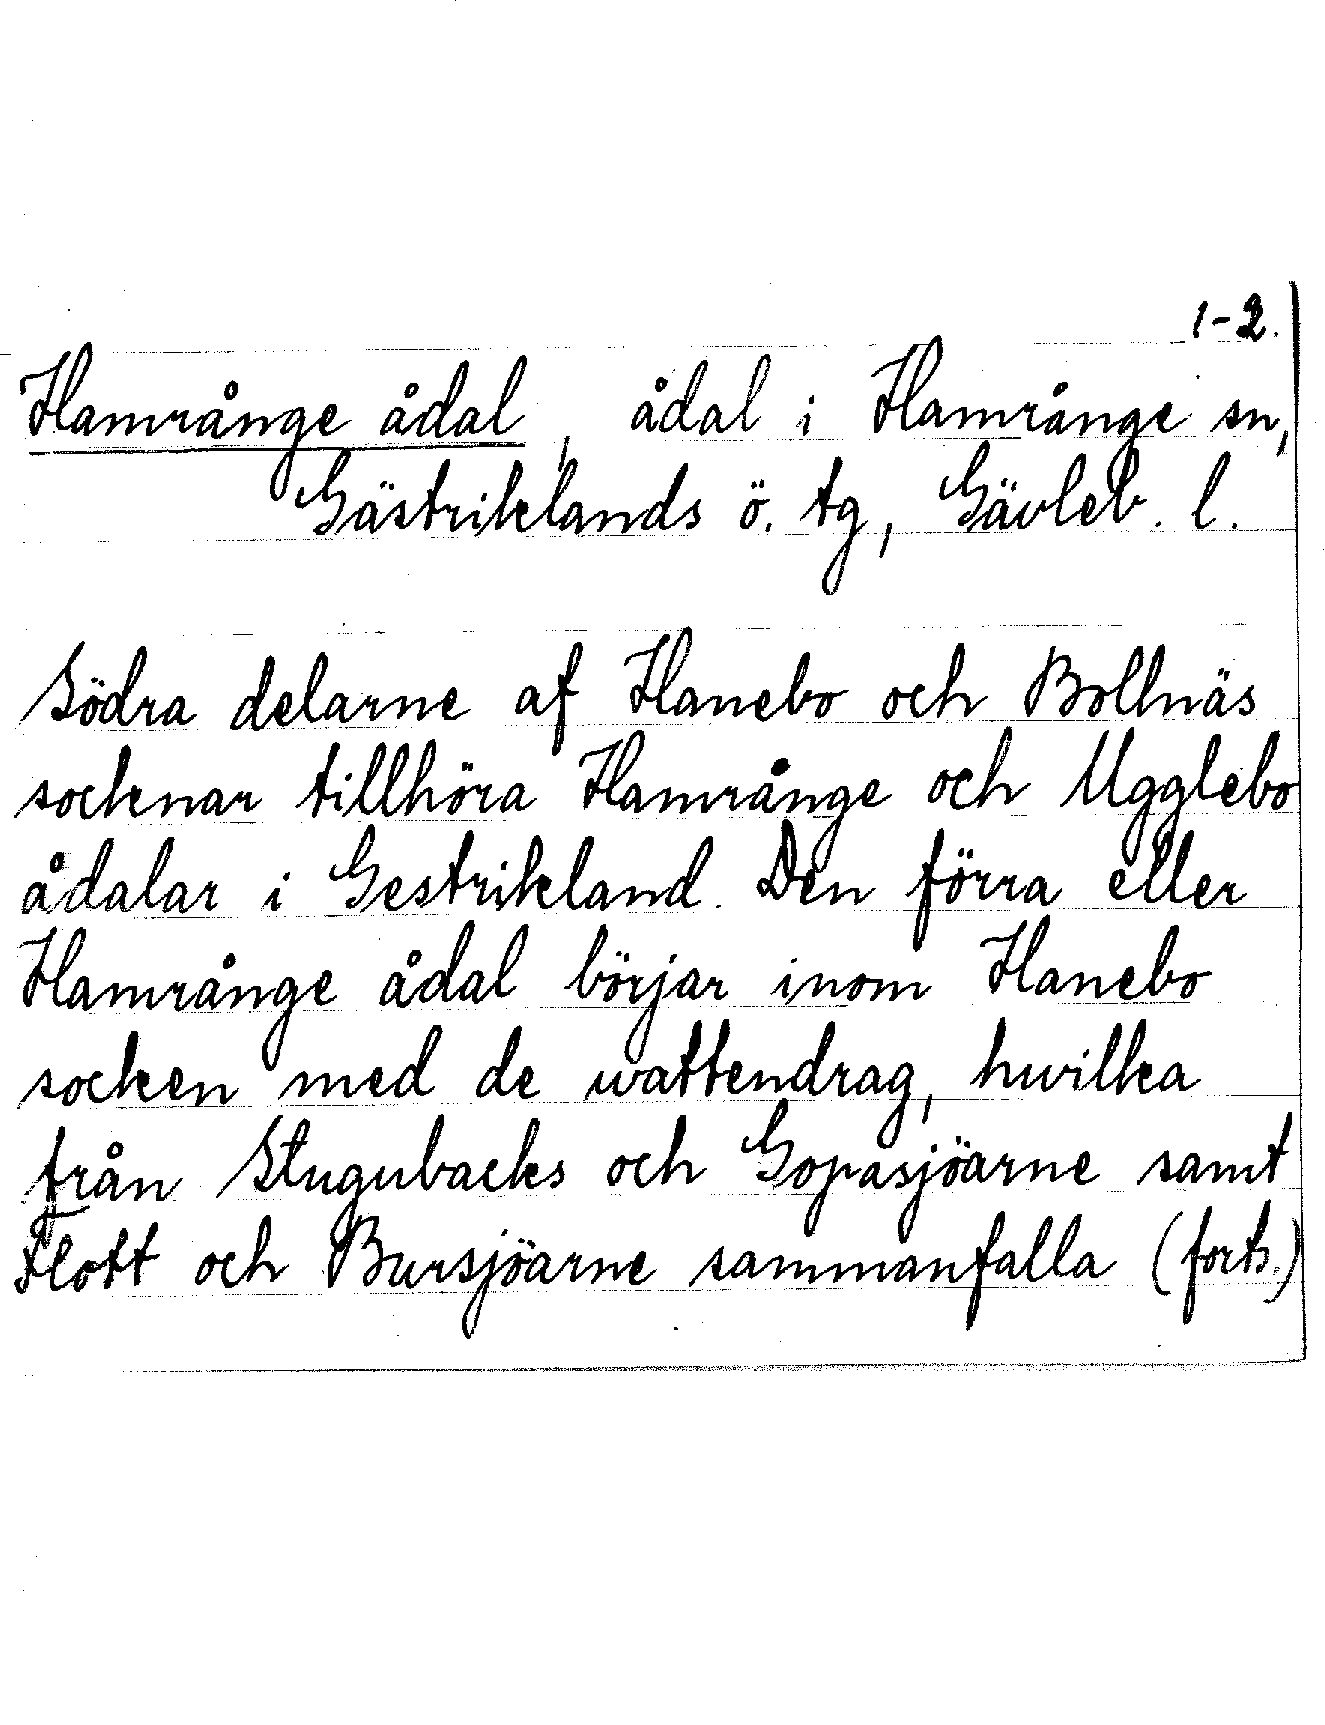 1-2.
Hamrånge ådal, ådal i Hamrånge sn,
Gästriklands ö. tg, Gävleb. l.
Södra delarne af Hanebo och Bollnäs
socknar tillhöra Hamrånge och Ugglebo
ådalar i Gestrikland. Den förra eller
Hamrånge ådal börjar inom Hanebo
socken med de wattendrag, hwilka
från Stugubacks och Gopasjöarne samt
Flott och Bursjöarne sammanfalla (forts.)